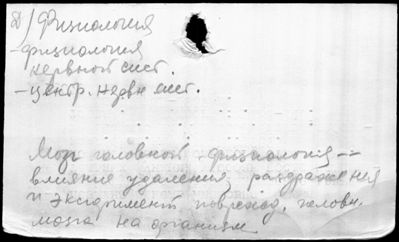 2) Физиология
- физиология
нервной сист.
- центр. нервн сист.
Мозг головной - физиология --
влияние удаления, раздражения
и эксперимент поврежд. головн.
мозга на организм